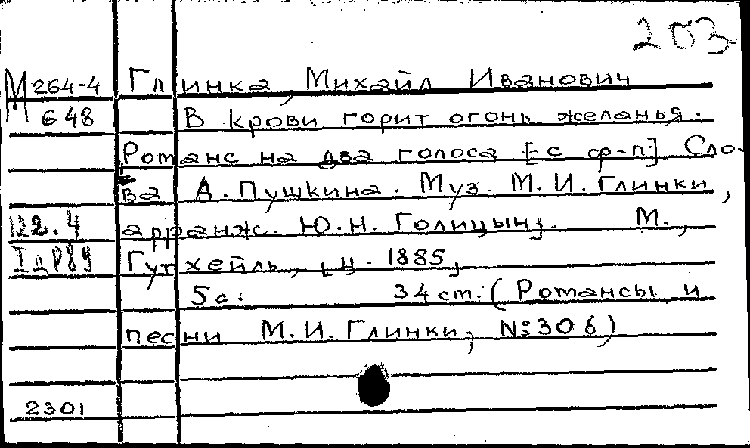 203
М 264-4 Глинка, Михаил Иванович
648 В крови горит огонь желанья.
Романс на два голоса [с ф-п] Сло-
ва А. Пушкина. Муз. М.И. Глинки,
аранж. Ю.Н. Голицын. М.,
Гутхейль, ц. 1885,
5с. 34 ст. (Романсы и
песни М.И. Глинки, №306)
2301